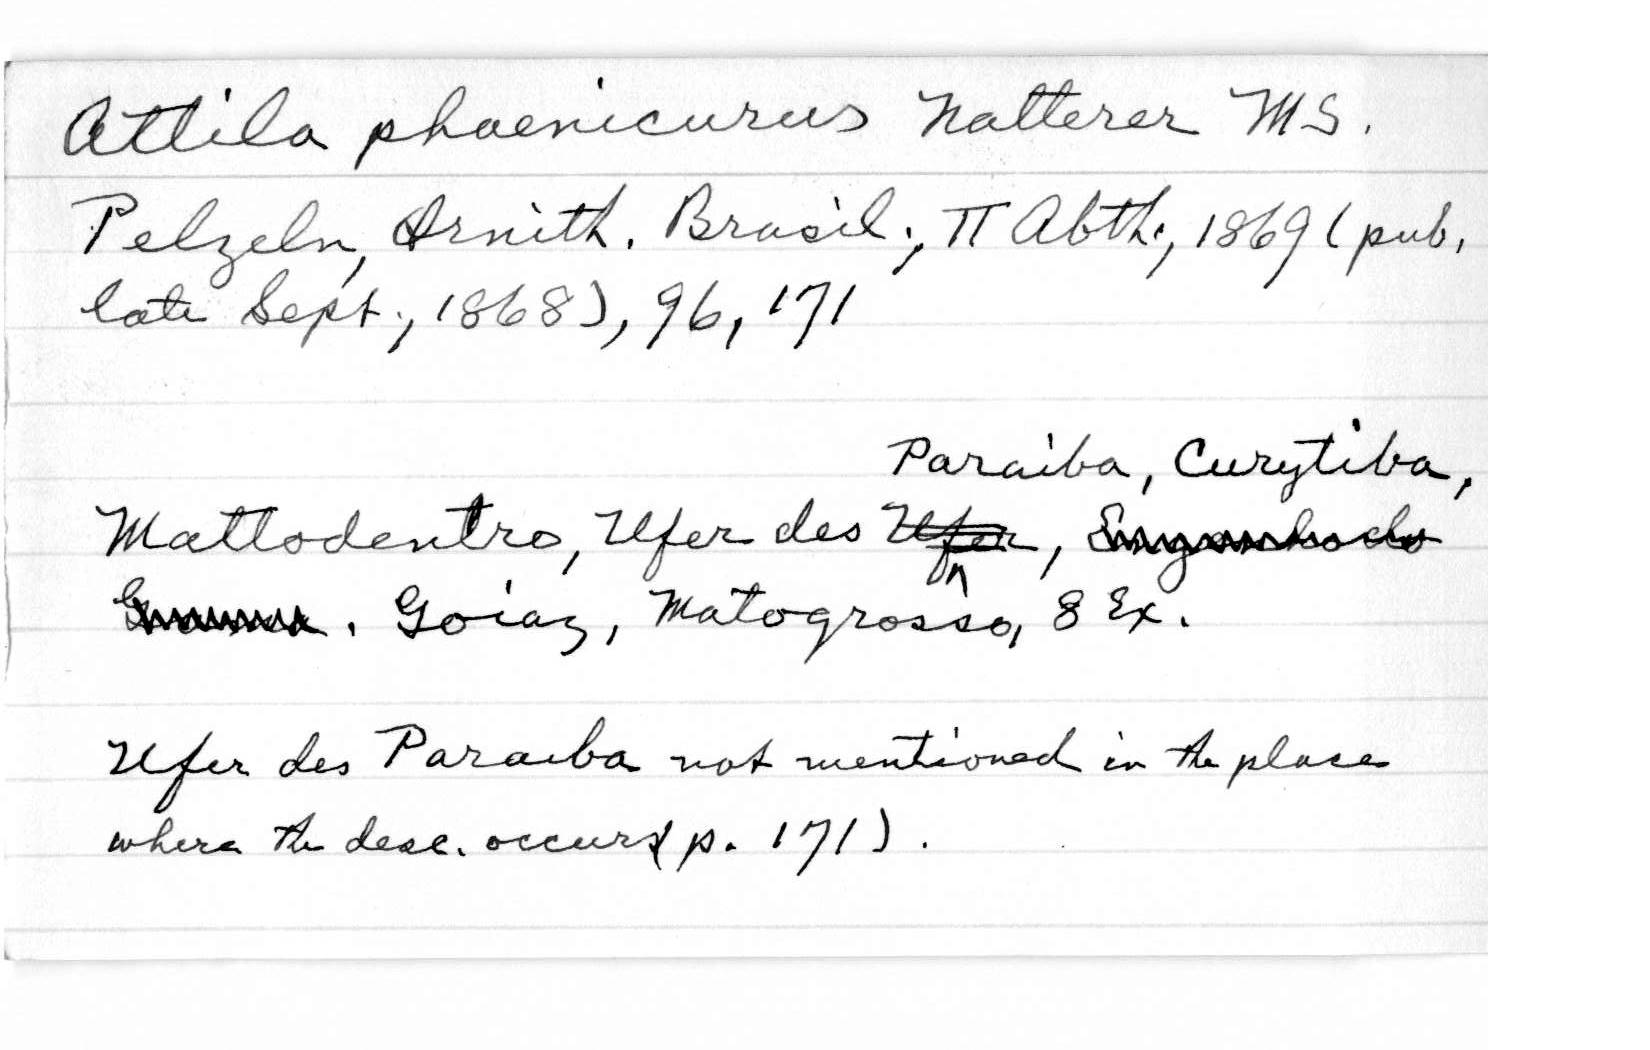 Attila phoenicurus Natterer MS.
Pelzeln, Ornith. Brasil., II Abth., 1869 (pub.
late Sept., 1868), 96, 171
Paraiba, Curytiba,
Mattodentro, Ufer des Ufer,
. Goiaz, Matogrosso, 8 Ex.
Ufer des Paraiba not mentioned in the place
where the desc. occurs (p. 171).